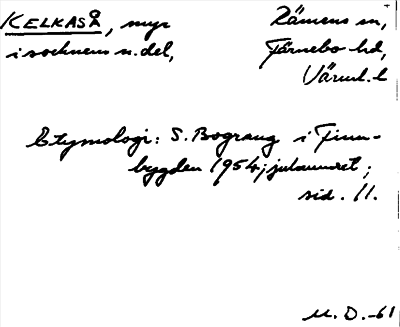 KELKASÅ, myr
i socknens n. del,
Rämens sn,
Färnebo hd,
Värml. l
Etymologi: S. Bograng i Finn-
bygden 1954; julnumret;
sid. 11.
M. D. -61